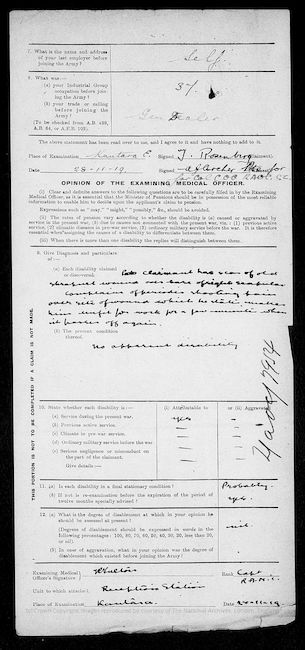 7. What is the name and address
of your last employer before
joining the Army?
Self.
8. What was:—
(a) your Industrial Group
occupation before join-
ing the Army?
37.
(b) your trade or calling
before joining the
Army?
Gen Dealer
(To be checked from A.B. 439,
A.B. 64, or A.F.B. 103).
The above statement has been read over to me, and I agree to it and have nothing to add to it.
Place of Examination Kantara E. Signed J. Rosenberg (Claimant)
Date 28-11-19. Signed
OPINION OF THE EXAMINING MEDICAL OFFICER.
(i) Clear and decisive answers to the following questions are to be carefully filled in by the Examining
Medical Officer, as it is essential that the Minister of Pensions should be in possession of the most reliable
information to enable him to decide upon the applicant's claim to pension.
Expressions such as "may," "might," "possibly," &c., should be avoided.
(ii) The rates of pension vary according to whether the disability is (a) caused or aggravated by
service in the present war, (b) due to causes not connected with the present war, viz.: (1) previous active
service, (2) climatic diseases in pre-war service, (3) ordinary military service before the war. It is therefore
essential when assigning the causes of a disability to differentiate between them.
(iii) When there is more than one disability the replies will distinguish between them.
THIS PORTION IS NOT TO BE COMPLETED IF A CLAIM IS NOT MADE.
9. Give Diagnosis and particulars
of:—
(a) Each disability claimed
or discovered.
claimant has scar of old
shrapnel wound over right scapular
Complains of periodic shooting pain
over site of wound which he states makes
him unfit for work for a few minutes then
it passes off again.
(b) The present condition
thereof.
No apparent disability
10. State whether each disability is:— (i) Attributable to or (ii) Aggravated
(a) Service during the present war. yes
(b) Previous active service.
(c) Climate in pre-war service.
(d) Ordinary military service before the war
(e) Serious negligence or misconduct on
the part of the claimant.
Give details:—
11. (a) Is each disability in a final stationary condition? Probably.
(b) If not is re-examination before the expiration of the period of
twelve months specially advised? yes.
12. (a) What is the degree of disablement at which in your opinion he
should be assessed at present? nil.
(Degrees of disablement should be expressed in words in the
following percentages: 100, 80, 70, 60, 50, 40, 30, 20, less than 20,
or nil).
(b) In case of aggravation, what in your opinion was the degree of
disablement which existed before joining the Army?
Examining Medical
Officer's Signature Rank Capt
R.A.M.C.
Unit to which attached Reception Station
Place of Examination Kantara. Date